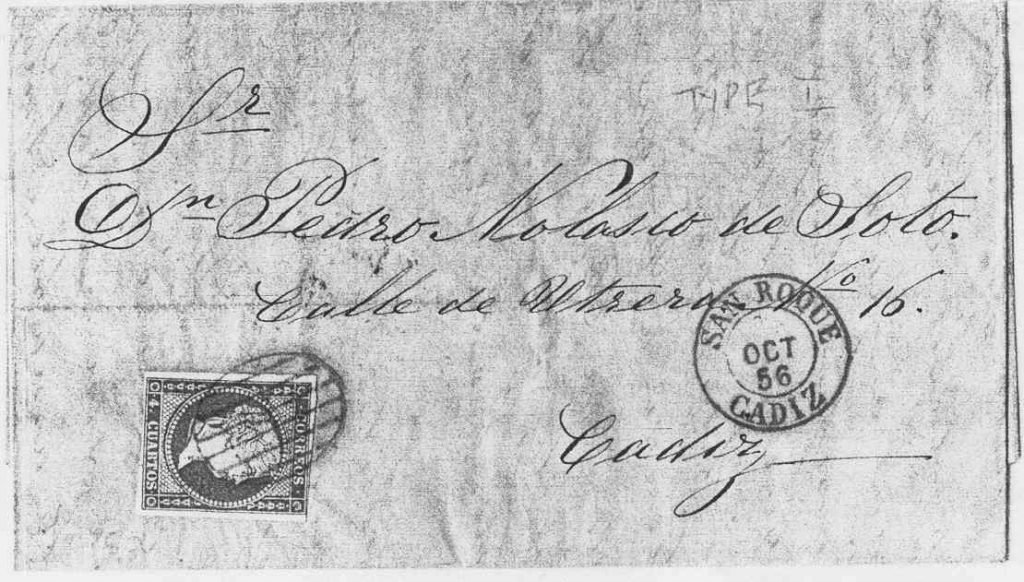 TYPE II
Sr
Dn Pedro Nolasco de Soto.
Calle de Utrera No 16.
SAN ROQUE
OCT
56
CADIZ
Cadiz
CORREOS.
4 CUARTOS